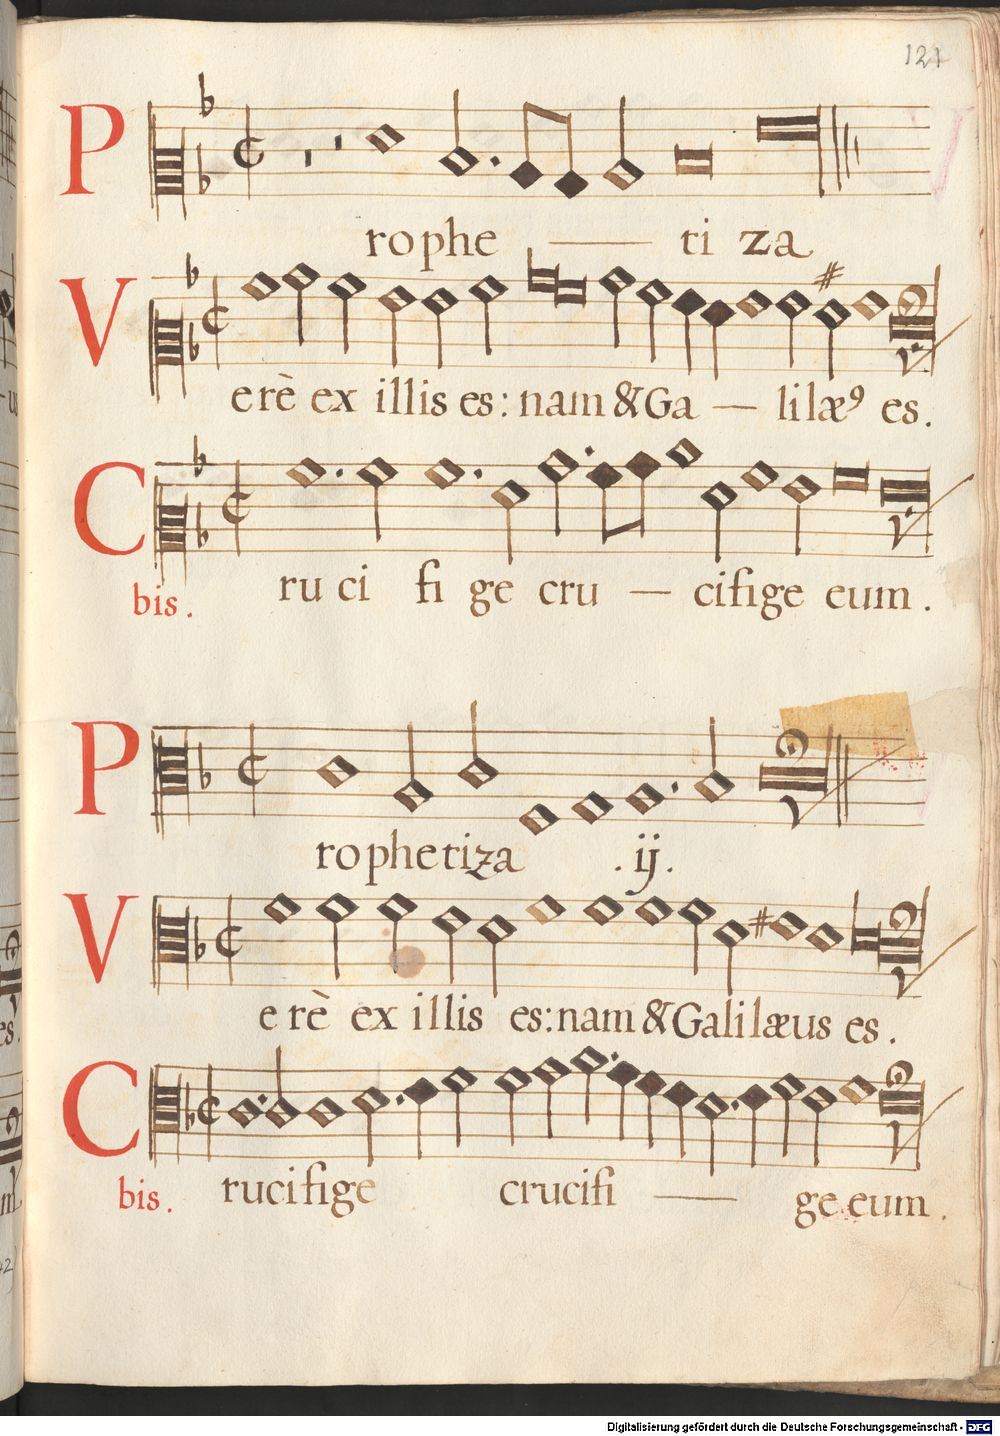 121
Prophe — tiza
Verè ex illis es: nam & Ga — lilæꝰ es.
Crucifige cru — cifige eum.
bis.
Prophetiza .ij.
Verè ex illis es: nam & Galilæus es.
Crucifige crucifi — ge eum.
bis.
Digitalisierung gefördert durch die Deutsche Forschungsgemeinschaft - DFG